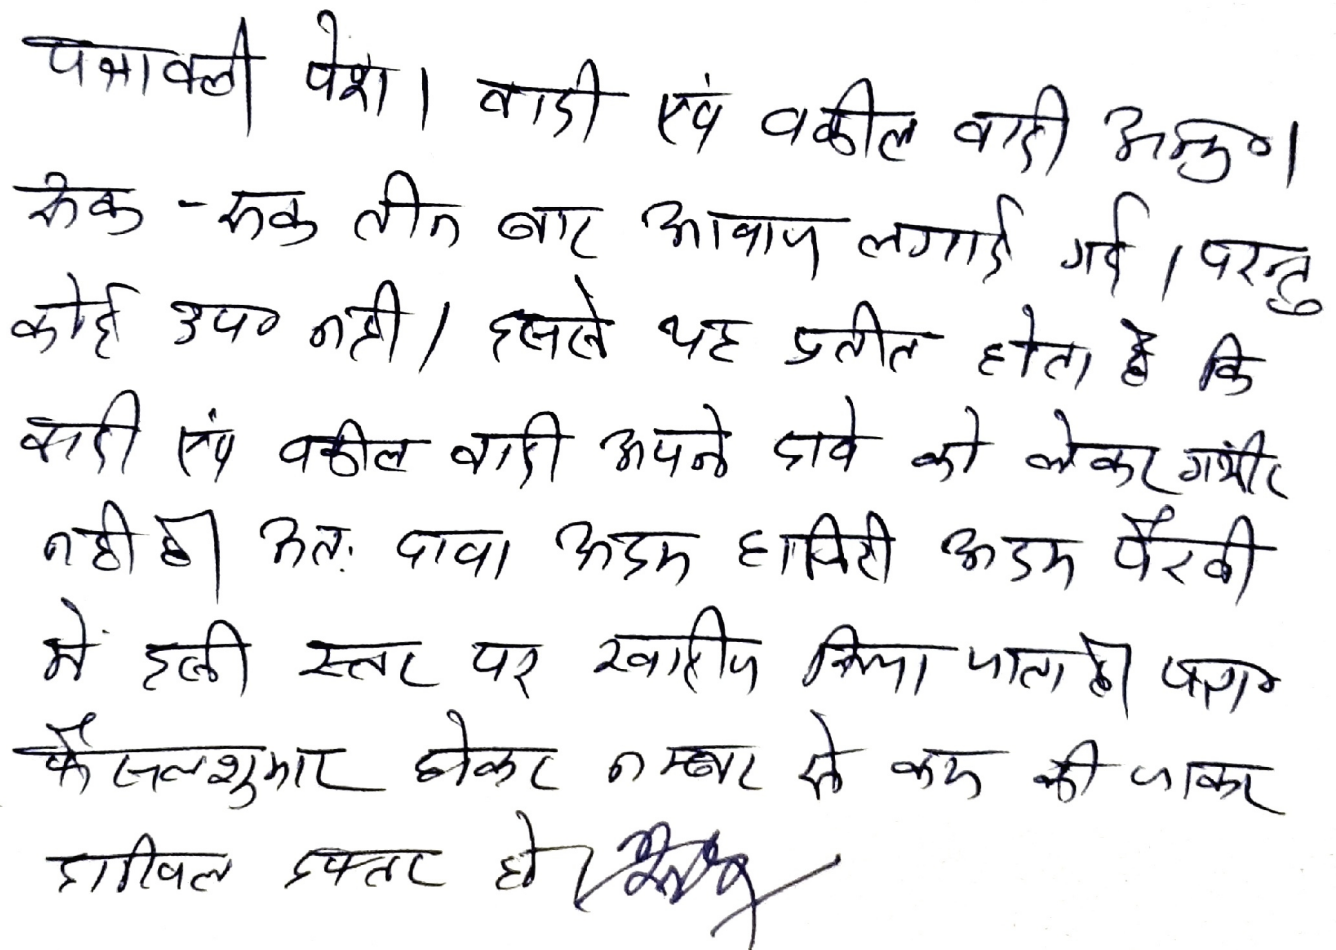 पत्रावली पेश। वादी एवं वकील वादी अनु०।
रूक - रूक तीन बार आवाज लगाई गई। परन्तु
कोई उप० नही। इससे यह प्रतीत होता है कि
वादी एवं वकील वादी अपने दावे को लेकर गंभीर
नही है। अतः दावा अदम हाजिरी अदम पैरवी
में इसी स्तर पर खारीज किया जाता है। पत्रा०
फैसलशुमार होकर नम्बर से कम की जाकर
दाखिल दफ्तर हो।